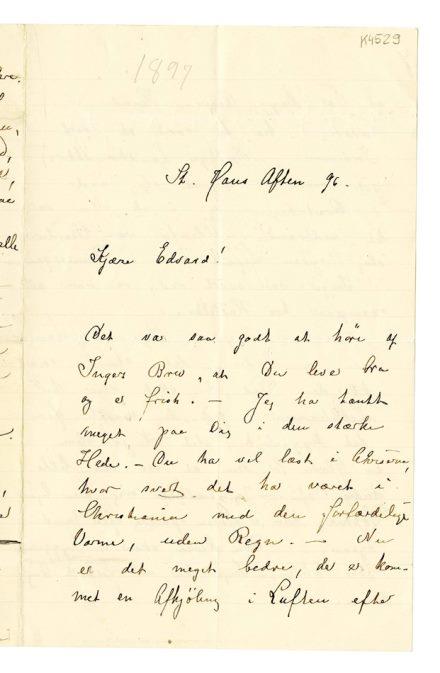 K4529
1897
St. Hans Aften 96.
Kjære Edvard!
Det var saa godt at höre af
Ingers Brev, at Du lever bra
og er frisk. — Jeg har tænkt
meget paa Dig i den stærke
Hede. — Du har vel læst i
hvor svært det har været i
Christiania med den forfærdelige
Varme, uden Regn. — Nu
er det meget bedre, da er kom-
met en Afkjöling i Luften efter